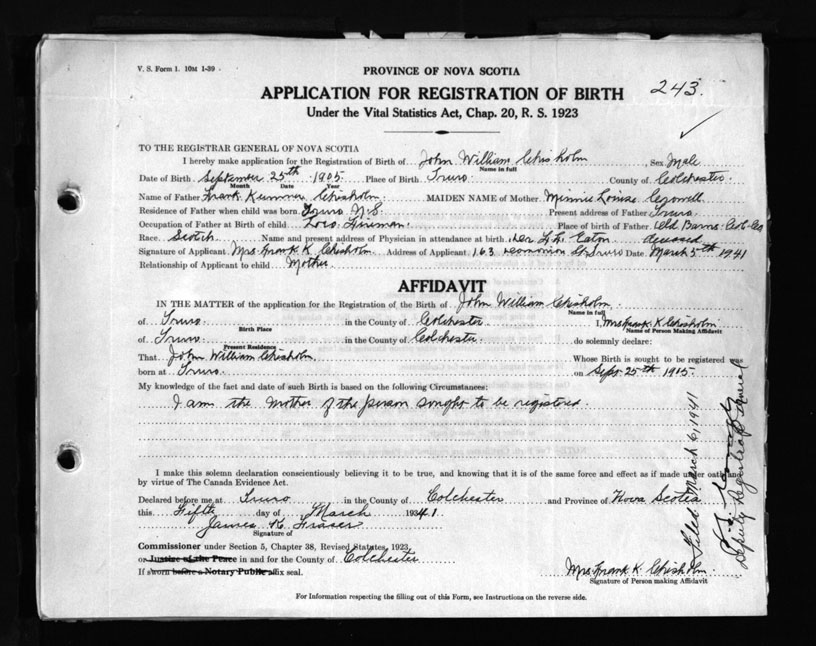 V. S. Form 1. 10M 1-39
PROVINCE OF NOVA SCOTIA
APPLICATION FOR REGISTRATION OF BIRTH 243.
Under the Vital Statistics Act, Chap. 20, R. S. 1923
TO THE REGISTRAR GENERAL OF NOVA SCOTIA
I hereby make application for the Registration of Birth of John William Chisholm, Sex Male
Name in full
Date of Birth September 25th 1905 Place of Birth Truro County of Colchester
Month Date Year
Name of Father Frank Chisholm MAIDEN NAME of Mother Minnie Louise
Residence of Father when child was born Truro N.S. Present address of Father Truro
Occupation of Father at Birth of child Loco Fireman Place of birth of Father Old Barns Col. Co
Race Scotch Name and present address of Physician in attendance at birth Eaton
Signature of Applicant Mrs. Frank K Chisholm Address of Applicant 163 Dominion St, Truro Date March 5th 1941
Relationship of Applicant to child Mother
AFFIDAVIT
IN THE MATTER of the application for the Registration of the Birth of John William Chisholm,
Name in full
of Truro in the County of Colchester I, Mrs Frank K Chisholm
Birth Place Name of Person Making Affidavit
of Truro in the County of Colchester do solemnly declare:
Present Residence
That John William Chisholm Whose Birth is sought to be registered was
born at Truro on Sept 25th 1915.
My knowledge of the fact and date of such Birth is based on the following Circumstances:
I am the Mother of the person sought to be registered.
I make this solemn declaration conscientiously believing it to be true, and knowing that it is of the same force and effect as if made under oath and
by virtue of The Canada Evidence Act.
Declared before me at Truro in the County of Colchester and Province of Nova Scotia
this Fifth day of March 1941
James K Fraser
Signature of
Commissioner under Section 5, Chapter 38, Revised Statutes, 1923,
or Justice of the Peace in and for the County of Colchester
If sworn before a Notary Public affix seal.
Mrs. Frank K Chisholm
Signature of Person making Affidavit
For Information respecting the filling out of this Form, see Instructions on the reverse side.
Filed March 6, 1941
Deputy Registrar General